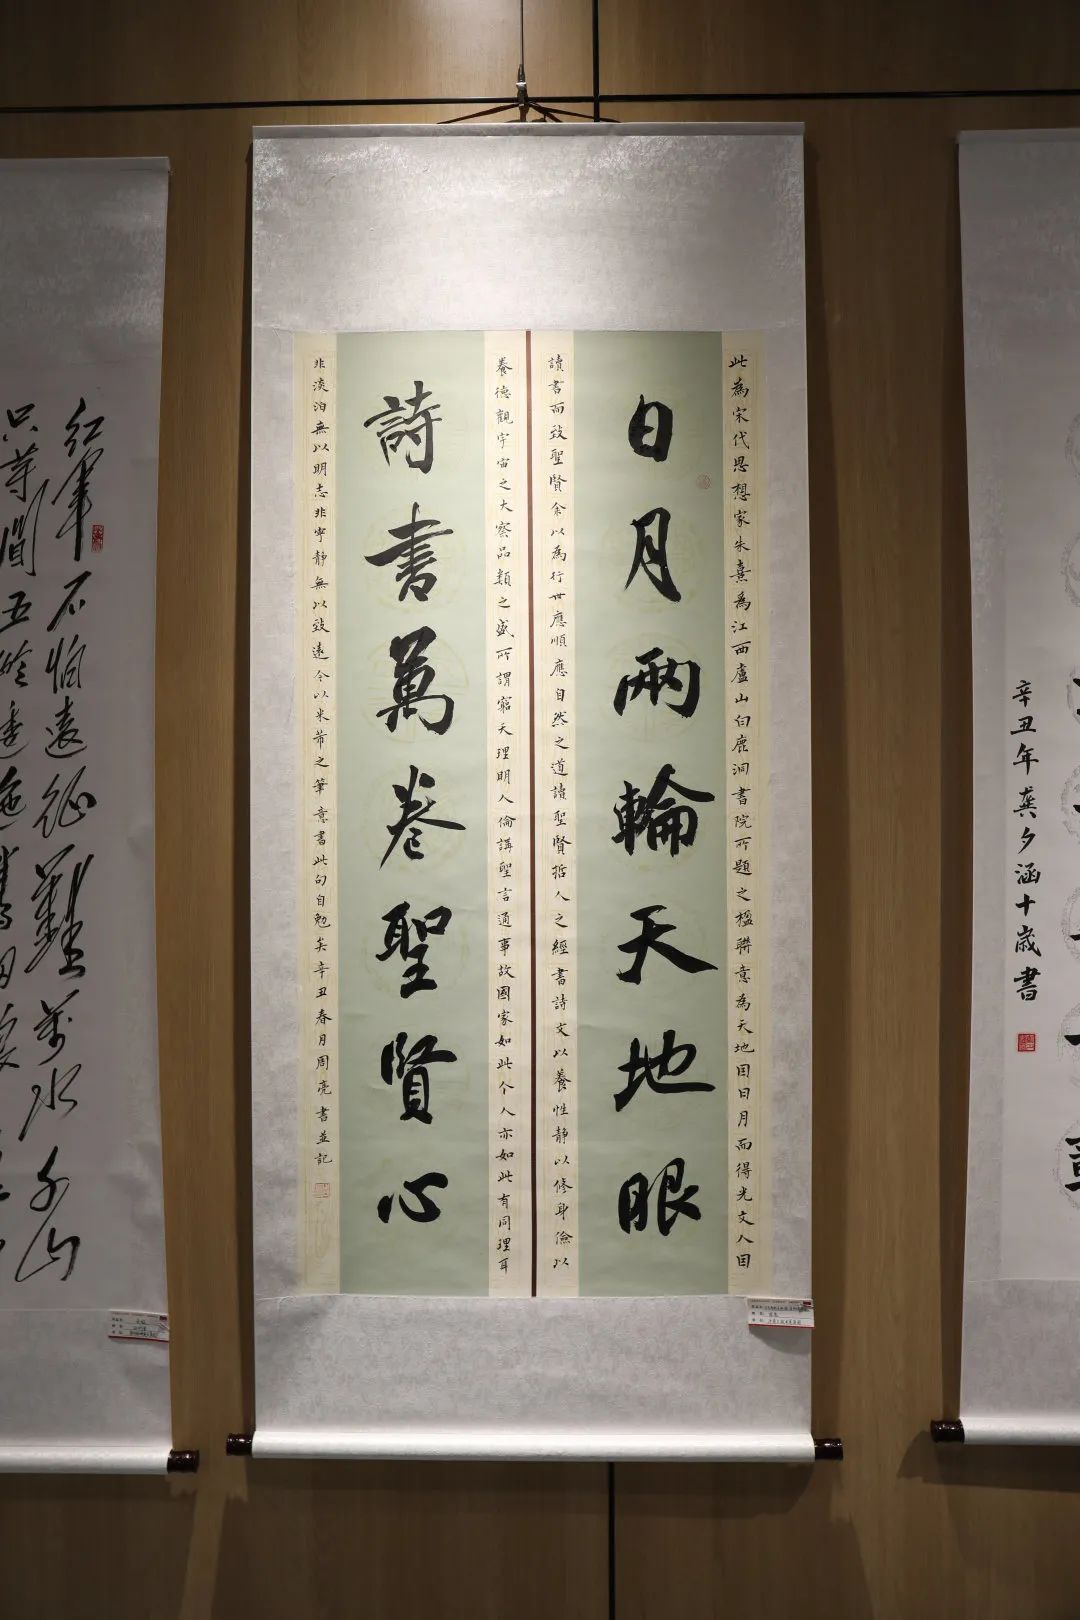 日月兩輪天地眼
詩書萬卷聖賢心
此為宋代思想家朱熹為江西廬山白鹿洞書院所題之楹聯意為天地因日月而得光文人因
讀書而致聖賢余以為行世應順應自然之道讀聖賢哲人之經書詩文以養性靜以修身儉以
養德觀宇宙之大察品類之盛所謂窮天理明人倫講聖言通事故國家如此个人亦如此有同理耳
非淡泊無以明志非寧靜無以致遠今以米芾之筆意書此句自勉矣辛丑春月周亮書並記
辛丑年龚夕涵十歲書
红軍不怕遠征難萬水千山
只等閒五